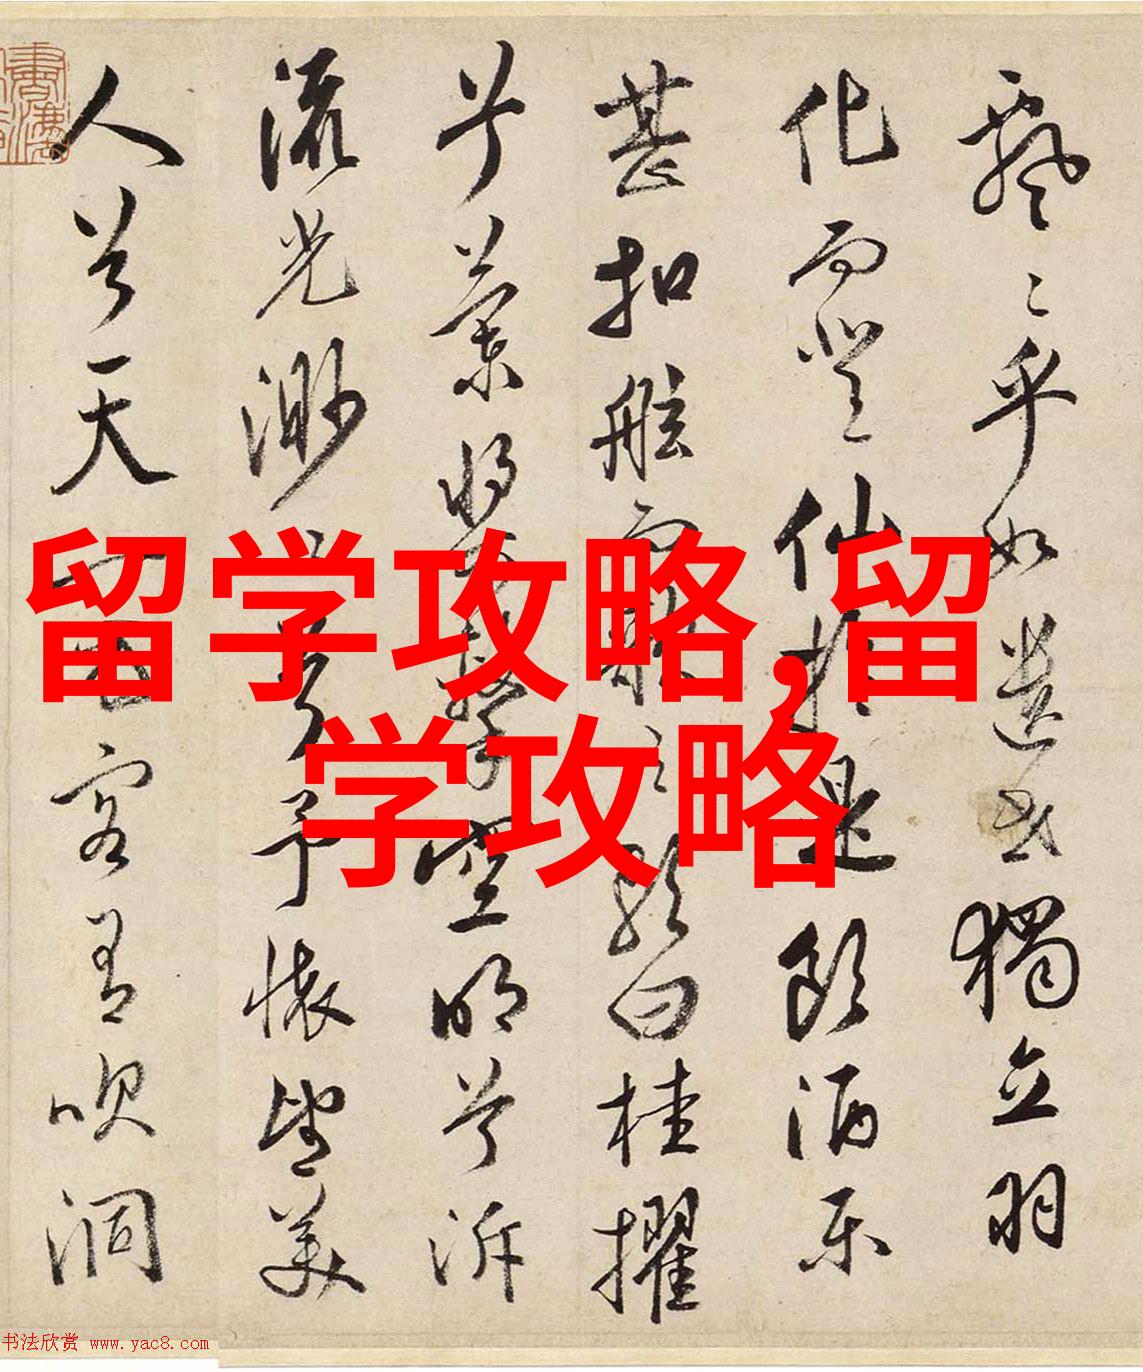 留学攻略,留
学攻略
飄〻乎如遺世獨立羽
化而登仙於是飲酒樂
甚扣舷而歌之歌曰桂擢
兮蘭槳兮擊空明兮泝
流光渺〻兮予懷望美
人兮天一方客有吹洞
书法欣赏 www.yac8.com